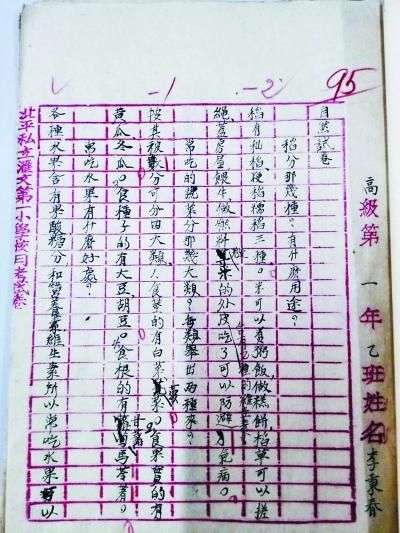 95
-2
-1
高級第一年乙班姓名李東春
自然試卷
稻分那幾種?有什麼用途?
稻有秈稻、硬稻、糯稻三種。米可以煮粥飯,做糕餅,稻草可以搓
繩,蓋房屋,餵牛,做燃料,米的外皮吃了可以防避
常吃的蔬菜分那幾大類?每類舉出兩種來?
按其被食部分可分四大類。食葉的有白菜菠菜。食果實的有
黃瓜,冬瓜。食種子的有大豆,胡豆。食根的有甘薯馬苓薯。
常吃水果有什麼好處?
各種水果含有果酸糖分和營養素維生素所以常吃水果可以
北平私立滙文第一小學校月考試卷